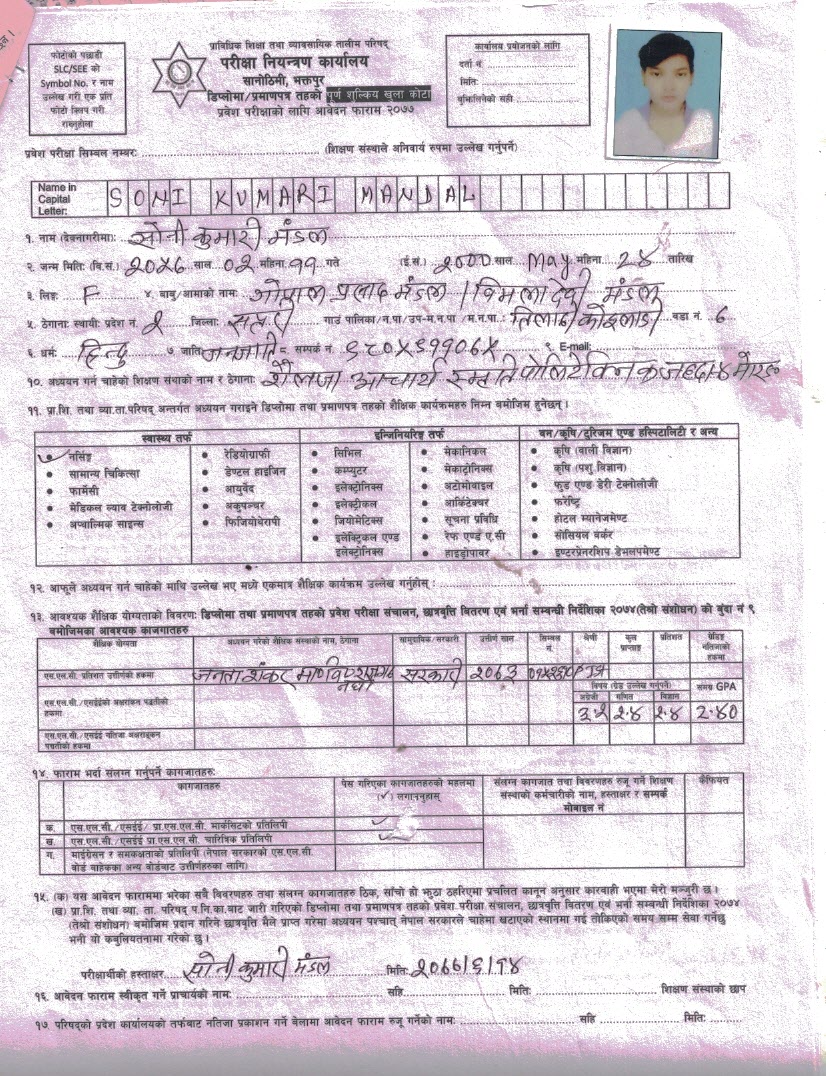 फोटोको पछाडी
SLC/SEE को
Symbol No. र नाम
उल्लेख गरी एक प्रति
फोटो क्लिप गरी
राख्नुहोला
प्राविधिक शिक्षा तथा व्यावसायिक तालीम परिषद्
परीक्षा नियन्त्रण कार्यालय
सानोठिमी, भक्तपुर
डिप्लोमा/प्रमाणपत्र तहको पूर्ण शुल्किय खुला कोटा
प्रवेश परीक्षाको लागि आवेदन फाराम २०७७
कार्यालय प्रयोजनको लागि
दर्ता नं.
मिति:
बुझिलिनेको सही
प्रवेश परीक्षा सिम्बल नम्बर: (शिक्षण संस्थाले अनिवार्य रुपमा उल्लेख गर्नुपर्ने)
Name in Capital Letter: SONI KUMARI MANDAL
१. नाम (देवनागरीमा): सोनी कुमारी मंडल
२. जन्म मिति: (वि.सं.) २०५६ साल ०२ महिना ११ गते (ई.सं.) 2000 साल May महिना 24 तारिख
३. लिङ्ग: F ४. बाबु/आमाको नाम: प्रसाद मंडल / विमला देवी मंडल
५. ठेगाना: स्थायी: प्रदेश नं. २ जिल्ला: सप्तरी गाउँ पालिका/न.पा/उप-म.न.पा/म.न.पा.: तिलाठी कोइलाडी वडा नं. ६
६. धर्म: हिन्दु ७ जाति जनजाति सम्पर्क नं. ९ E-mail:
१०. अध्ययन गर्न चाहेको शिक्षण संस्थाको नाम र ठेगाना: शैलजा आचार्य स्मृति पोलिटेक्निक
११. प्रा.शि. तथा व्या.ता.परिषद् अन्तर्गत अध्ययन गराइने डिप्लोमा तथा प्रमाणपत्र तहको शैक्षिक कार्यक्रमहरु निम्न बमोजिम हुनेछन् ।
स्वास्थ्य तर्फ
नर्सिङ्ग
सामान्य चिकित्सा
फार्मेसी
मेडिकल ल्याव टेक्नोलोजी
अप्थाल्मिक साइन्स
रेडियोग्राफी
डेण्टल हाइजिन
आयुर्वेद
अकुपञ्चर
फिजियोथेरापी
इन्जिनियरिङ्ग तर्फ
सिभिल
कम्प्युटर
इलेक्ट्रोनिक्स
इलेक्ट्रीकल
जियोमेटिक्स
इलेक्ट्रिकल एण्ड
इलेक्ट्रोनिक्स
मेकानिकल
मेकाट्रोनिक्स
अटोमोवाइल
आर्किटेक्चर
सूचना प्रविधि
रेफ एण्ड ए.सी
हाइड्रोपावर
बन/कृषि/टुरिजम एण्ड हस्पिटालिटी र अन्य
कृषि (वाली विज्ञान)
कृषि (पशु विज्ञान)
फुड एण्ड डेरी टेक्नोलोजी
फरेष्ट्रि
होटल म्यानेजमेण्ट
सोसियल वर्कर
इण्टरप्रेनरशिप डेभलपमेण्ट
१२. आफूले अध्ययन गर्न चाहेको माथि उल्लेख भए मध्ये एकमात्र शैक्षिक कार्यक्रम उल्लेख गर्नुहोस् :
१३. आवश्यक शैक्षिक योग्यताको विवरण: डिप्लोमा तथा प्रमाणपत्र तहको प्रवेश परीक्षा संचालन, छात्रवृत्ति वितरण एवं भर्ना सम्बन्धी निर्देशिका २०७४(तेश्रो संशोधन) को बुंदा नं ९
बमोजिमका आवश्यक कागजातहरु
शैक्षिक योग्यता अध्ययन गरेको शैक्षिक संस्थाको नाम, ठेगाना सामुदायिक/सरकारी उत्तीर्ण साल सिम्बल नं. श्रेणी कूल प्राप्ताङ्क प्रतिशत ग्रेडिङ नतिजाको हकमा
एस.एल.सी. प्रतिशत उत्तीर्णको हकमा जनता शंकर सरकारी २०७३
विषय (ग्रेड उल्लेख गर्नुपर्ने) समग्र GPA
अंग्रेजी गणित विज्ञान
एस.एल.सी./एसईईको अक्षराङ्कन पद्धतीको हकमा ३.२ २.४ २.४ २.४०
एस.एल.सी./एसईई नतिजा अक्षराङ्कन पद्धतीको हकमा
१४. फाराम भर्दा संलग्न गर्नुपर्ने कागजातहरु:
कागजातहरु पेस गरिएका कागजातहरुको महलमा (✓) लगाउनुहोस् संलग्न कागजात तथा विवरणहरु रुजू गर्ने शिक्षण संस्थाको कर्मचारीको नाम, हस्ताक्षर र सम्पर्क मोबाइल नं कैफियत
क. एस.एल.सी./एसईई/ प्रा.एस.एल.सी. मार्कसिटको प्रतिलिपी ✓
ख. एस.एल.सी./एसईई प्रा.एस.एल.सी. चारित्रिक प्रतिलिपी ✓
ग. माईग्रेसन र समकक्षताको प्रतिलिपी (नेपाल सरकारको एस.एल.सी.
बोर्ड बाहेकका अन्य बोर्डबाट उत्तीर्णहरुका लागि)
१५. (क) यस आवेदन फाराममा भरेका सबै विवरणहरु तथा संलग्न कागजातहरु ठिक, साँचो हो झुठा ठहरिएमा प्रचलित कानून अनुसार कारवाही भएमा मेरो मञ्जुरी छ ।
(ख) प्रा.शि. तथा व्या. ता. परिषद् प.नि.का.बाट जारी गरिएको डिप्लोमा तथा प्रमाणपत्र तहको प्रवेश परीक्षा संचालन, छात्रवृत्ति वितरण एवं भर्ना सम्बन्धी निर्देशिका २०७४
(तेश्रो संशोधन) बमोजिम प्रदान गरिने छात्रवृत्ति मैले प्राप्त गरेमा अध्ययन पश्चात् नेपाल सरकारले चाहेमा खटाएको स्थानमा गई तोकिएको समय सम्म सेवा गर्नेछु
भनी यो कबुलियतनामा गरेको छु ।
परीक्षार्थीको हस्ताक्षर सोनी कुमारी मंडल मिति: २०७७/६/१४
१६. आवेदन फाराम स्वीकृत गर्ने प्राचार्यको नाम: सहि मिति: शिक्षण संस्थाको छाप
१७. परिषद्को प्रदेश कार्यालयको तर्फबाट नतिजा प्रकाशन गर्ने बेलामा आवेदन फाराम रुजू गर्नेको नाम: सहि मिति: